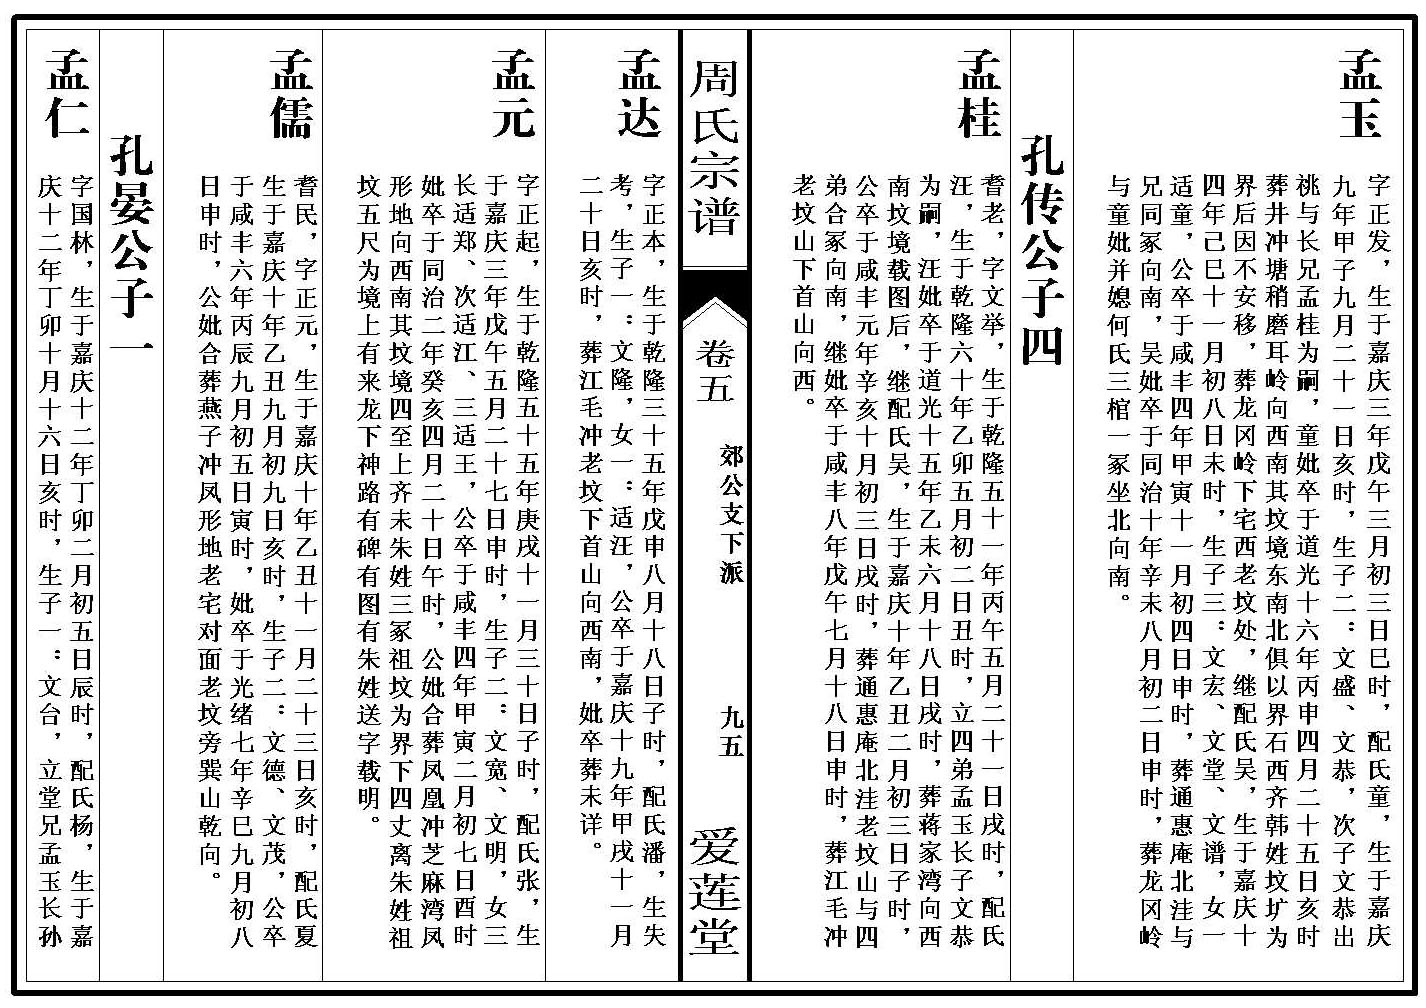 孟玉
字正发，生于嘉庆三年戊午三月初三日巳时，配氏童，生于嘉庆
九年甲子九月二十一日亥时，生子二：文盛、文恭，次子文恭出
祧与长兄孟桂为嗣，童妣卒于道光十六年丙申四月二十五日亥时
葬井冲塘稍磨耳岭向西南其坟境东南北俱以界石西齐韩姓坟圹为
界后因不安移，葬龙冈岭下宅西老坟处，继配氏吴，生于嘉庆十
四年己巳十一月初八日未时，生子三：文宏、文堂、文谱，女一
适童，公卒于咸丰四年甲寅十一月初四日申时，葬通惠庵北洼与
兄同冢向南，吴妣卒于同治十年辛未八月初二日申时，葬龙冈岭
与童妣并媳何氏三棺一冢坐北向南。
孔传公子四
孟桂
耆老，字文举，生于乾隆五十一年丙午五月二十一日戌时，配氏
汪，生于乾隆六十年乙卯五月初二日丑时，立四弟孟玉长子文恭
为嗣，汪妣卒于道光十五年乙未六月十八日戌时，葬蒋家湾向西
南坟境载图后，继配氏吴，生于嘉庆十年乙丑二月初三日子时，
公卒于咸丰元年辛亥十月初三日戌时，葬通惠庵北洼老坟山与四
弟合冢向南，继妣卒于咸丰八年戊午七月十八日申时，葬江毛冲
老坟山下首山向西。
周氏宗谱
卷五
郊公支下派
九五
爱莲堂
孟达
字正本，生于乾隆三十五年戊申八月十八日子时，配氏潘，生失
考，生子一：文隆，女一：适汪，公卒于嘉庆十九年甲戌十一月
二十日亥时，葬江毛冲老坟下首山向西南，妣卒葬未详。
孟元
字正起，生于乾隆五十五年庚戌十一月三十日子时，配氏张，生
于嘉庆三年戊午五月二十七日申时，生子二：文宽、文明，女三
长适郑、次适江、三适王，公卒于咸丰四年甲寅二月初七日酉时
妣卒于同治二年癸亥四月二十日午时，公妣合葬凤凰冲芝麻湾凤
形地向西南其坟境四至上齐未朱姓三冢祖坟为界下四丈离朱姓祖
坟五尺为境上有来龙下神路有碑有图有朱姓送字载明。
孟儒
耆民，字正元，生于嘉庆十年乙丑十一月二十三日亥时，配氏夏
生于嘉庆十年乙丑九月初九日亥时，生子二：文德、文茂，公卒
于咸丰六年丙辰九月初五日寅时，妣卒于光绪七年辛巳九月初八
日申时，公妣合葬燕子冲凤形地老宅对面老坟旁巽山乾向。
孔晏公子一
孟仁
字国林，生于嘉庆十二年丁卯二月初五日辰时，配氏杨，生于嘉
庆十二年丁卯十月十六日亥时，生子一：文台，立堂兄孟玉长孙